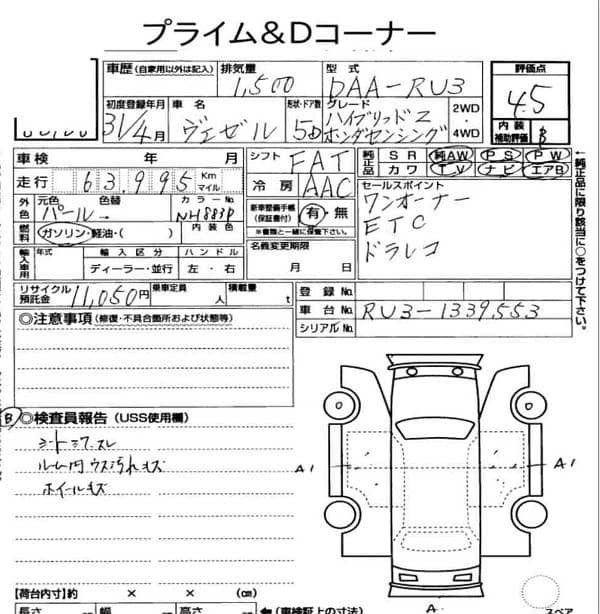 プライム&Dコーナー
車歴 (自家用以外は記入) 排気量 型式 評価点
1,500 DAA-RU3 4.5
初度登録年月 車名 形状・ドア数 グレード 2WD 内装
31/4月 ヴェゼル 5D ハイブリッドZ ホンダセンシング 4WD 補助評価 B
車検 年 月 シフト FAT 純正品 SR 純AW PS PW
走行 63,995 Km マイル 冷房 AAC カワ TV ナビ エアB
外色 元色 色替 カラーNo. 新車整備手帳 (保証書付) 有・無 セールスポイント
パール NH883P ※書類と一緒に保管下さい。 ワンオーナー
燃料 ガソリン・軽油・( ) 内装色 名義変更期限 ETC
輸入車用 年式 輸入区分 ハンドル 月 日 ドラレコ
ディーラー・並行 左・右
←純正品に限り該当に○をつけて下さい。
リサイクル預託金 11,050円 乗車定員 人 積載量 t 登録No.
車台No. RU3-1339553
シリアルNo.
◎注意事項 (修復・不具合箇所および状態等)
B ◎検査員報告 (USS使用欄)
シートシワスレ
ルーム内ウス汚れキズ
ホイールキズ
A1 A1
A
【荷台内寸】約 × × (cm)
長さ 幅 高さ ←(車検証上の寸法) スペア